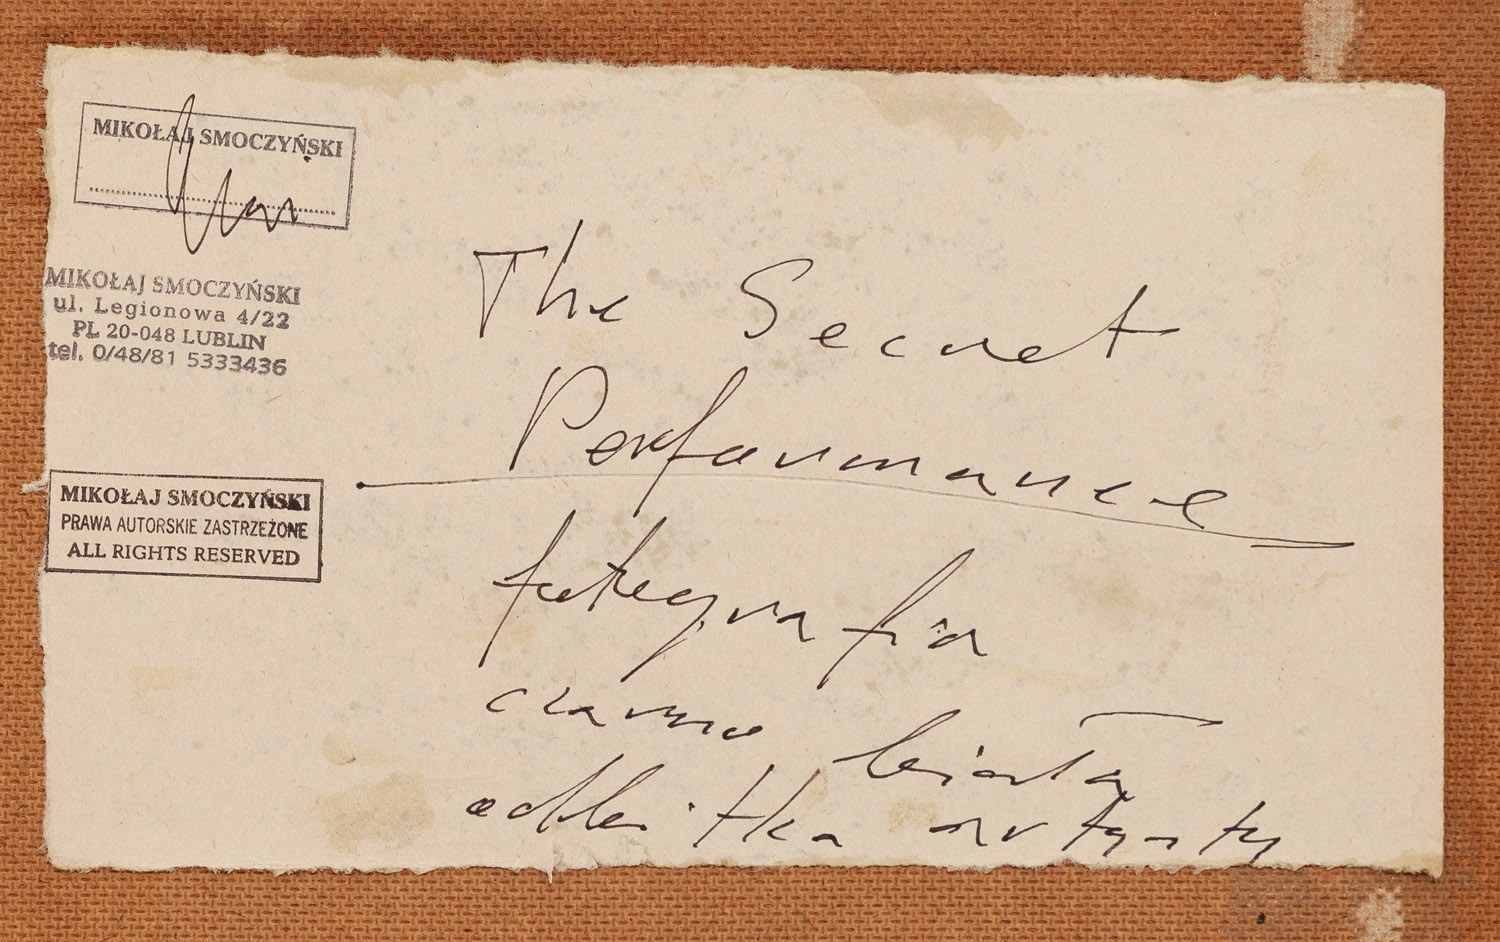 MIKOŁAJ SMOCZYŃSKI
MIKOŁAJ SMOCZYŃSKI
ul. Legionowa 4/22
PL 20-048 LUBLIN
tel. 0/48/81 5333436
MIKOŁAJ SMOCZYŃSKI
PRAWA AUTORSKIE ZASTRZEŻONE
ALL RIGHTS RESERVED
The Secret
Performance
fotografia
czarno biała
odbitka artysty